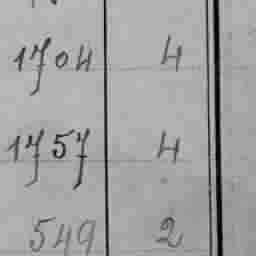 1704 4
1757 4
549 2